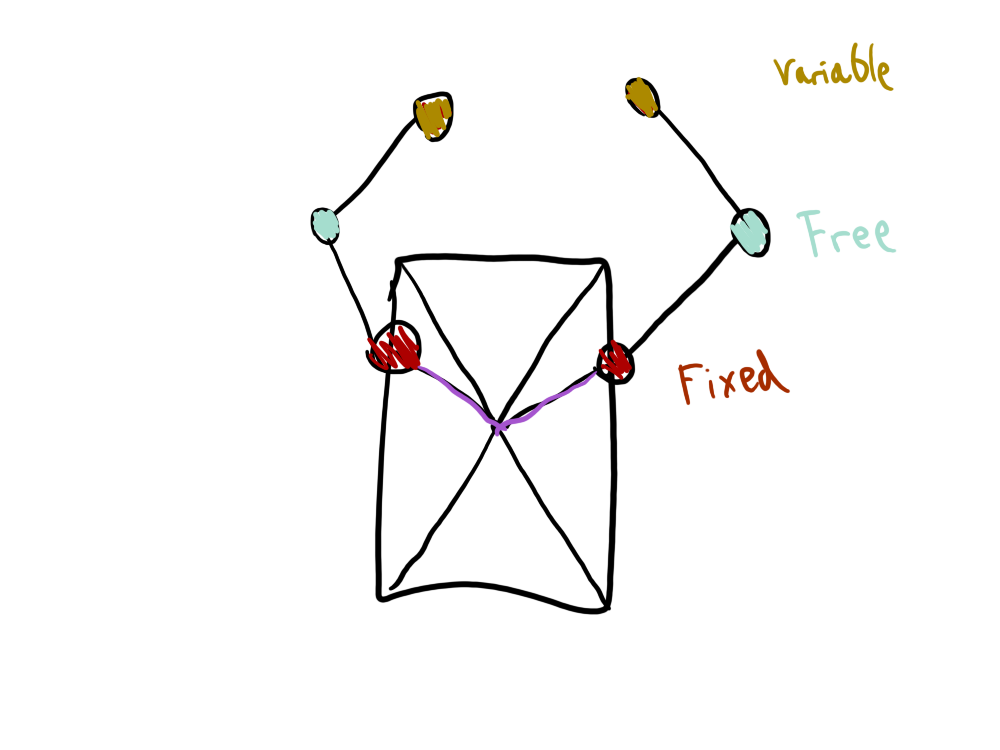 Variable
Free
Fixed